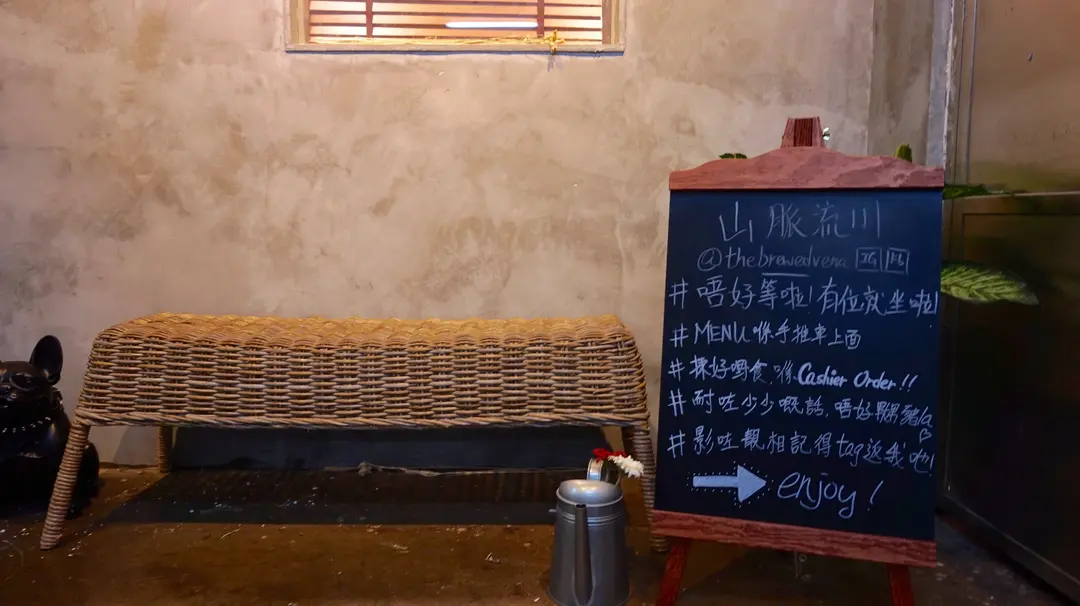 山脈流川
@thebrewedvena IG FB
#唔好等啦!有位就坐啦!
#MENU喺手推車上面
#揀好嘢食,喺Cashier Order!!
#耐咗少少嘅話,唔好嬲豬la
#影咗靚相記得tag返我哋!
enjoy!